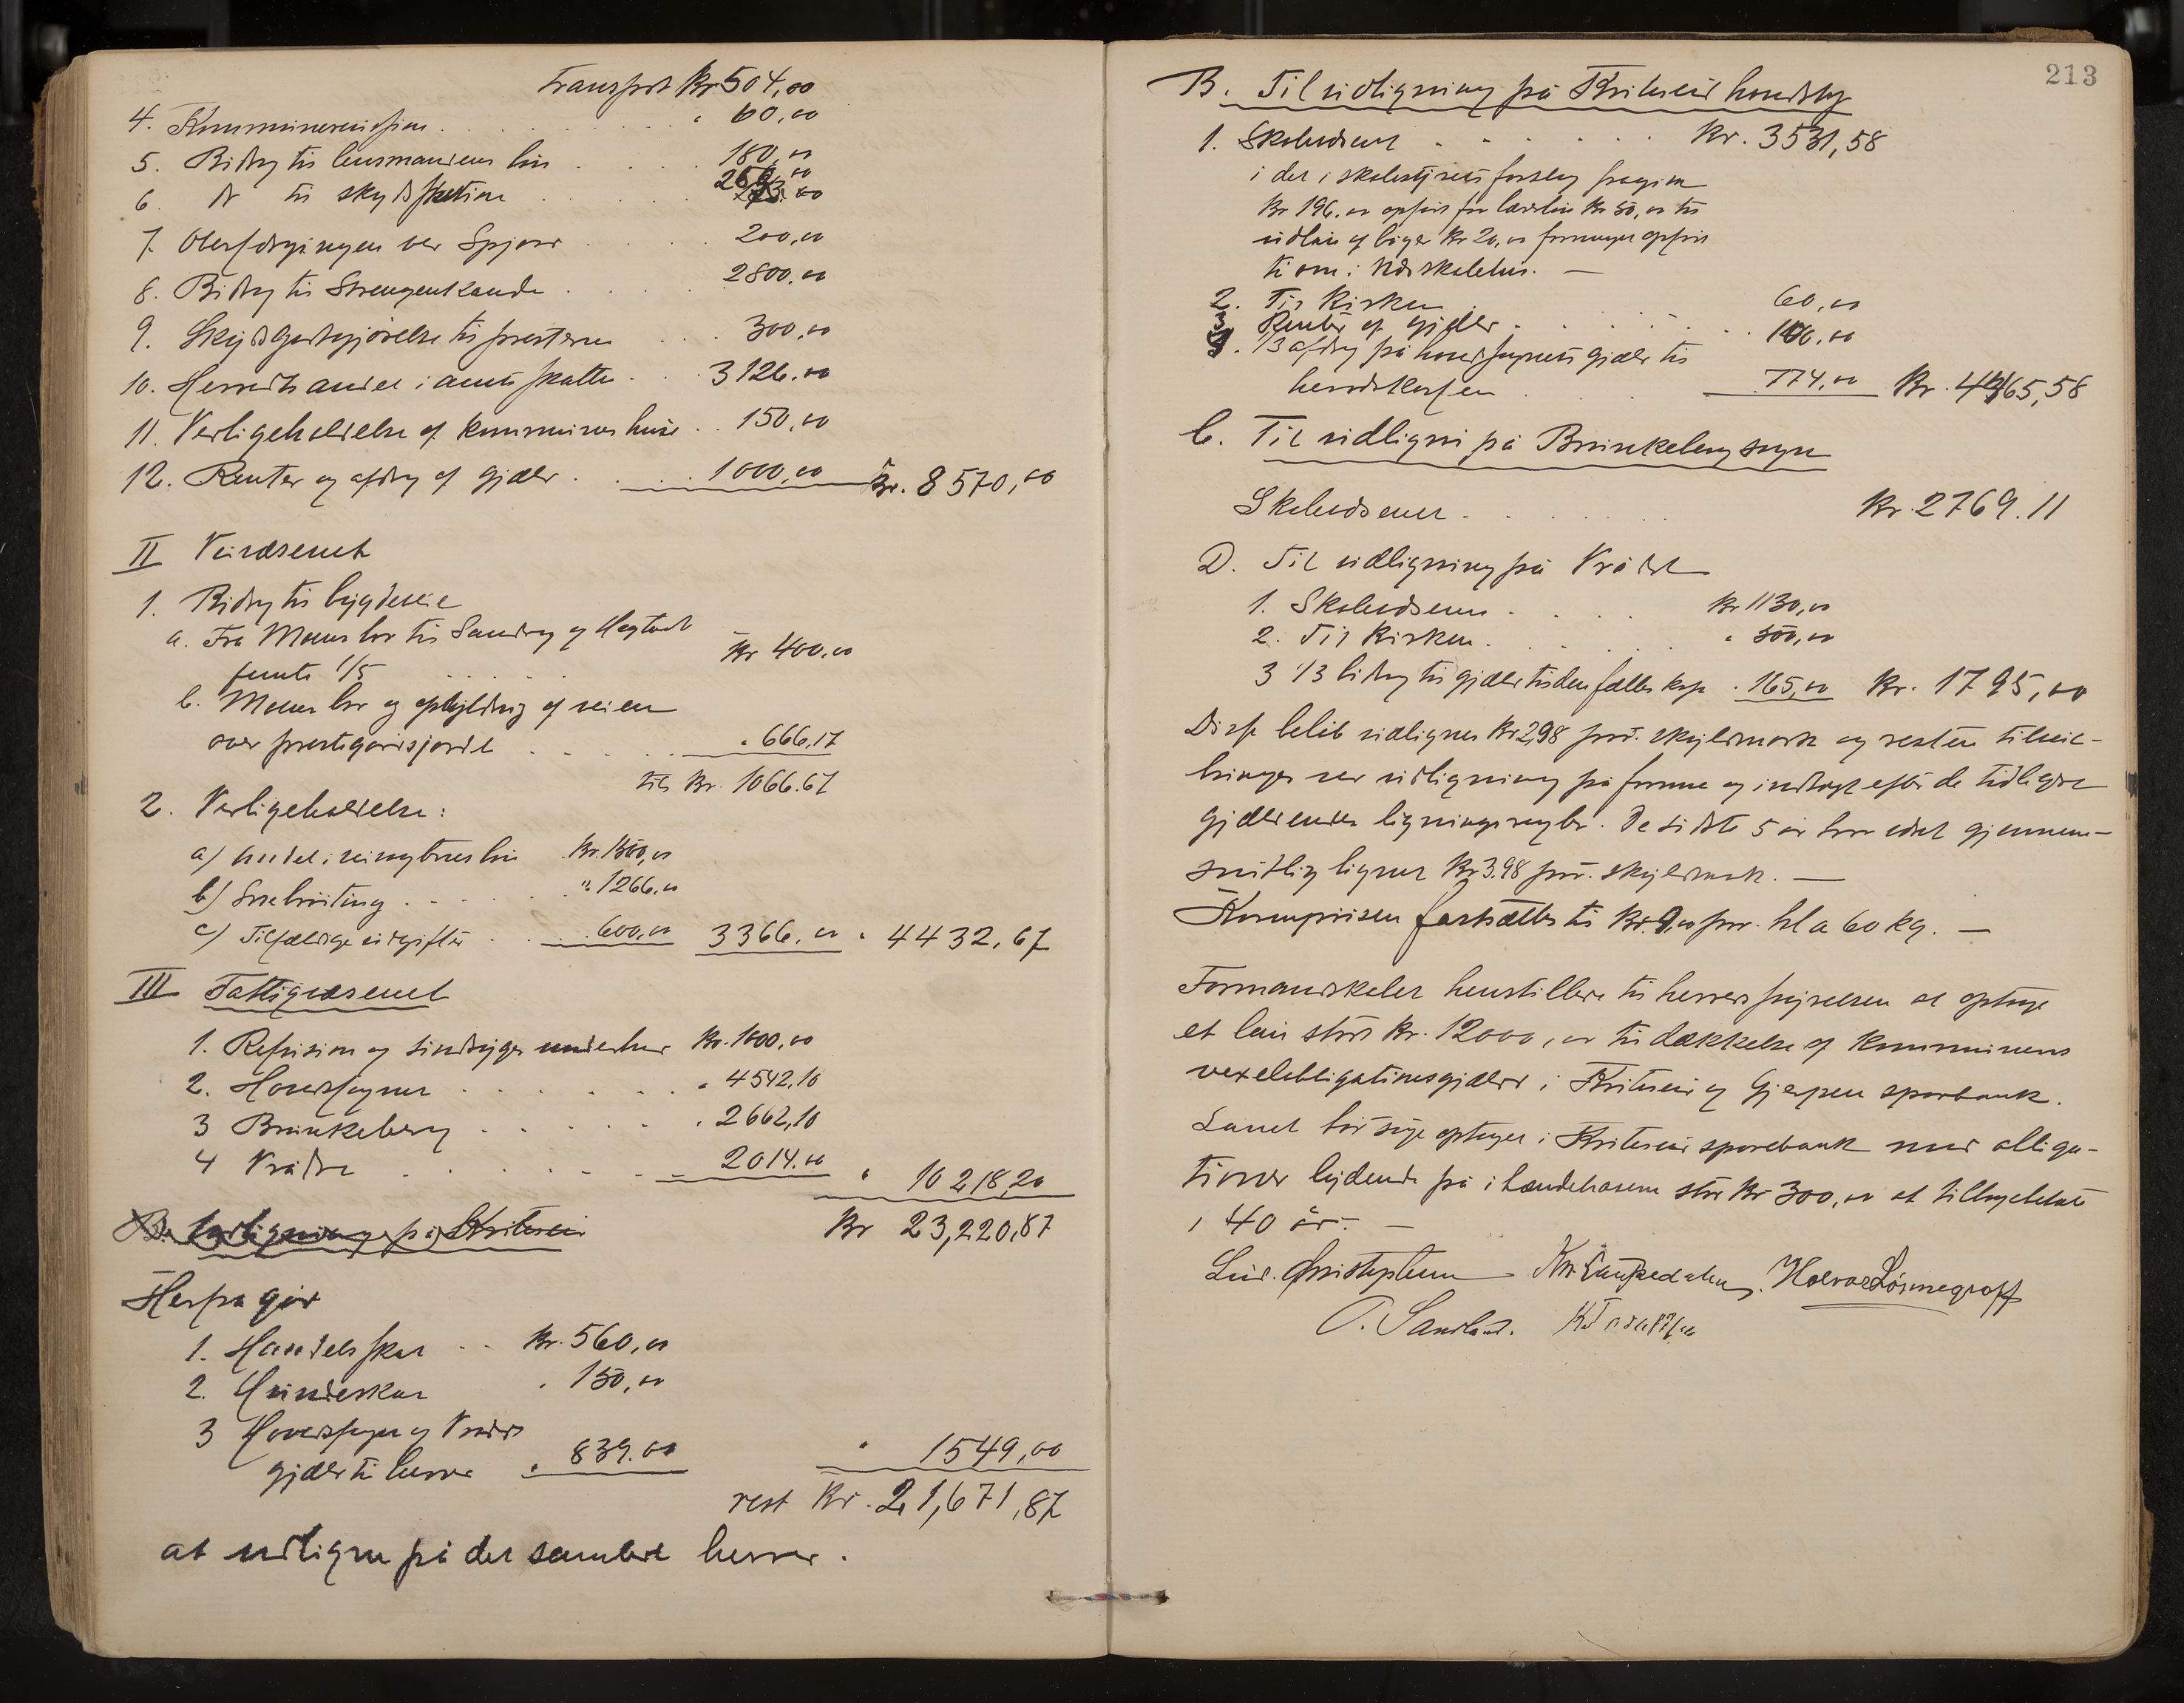 Transport Kr 504,00
4. Kommunerevision . . . . . . " 60,00
5. Bidrag til lensmandens hus . . . . 180,00
6. Do til skydsstation . . . . 250,00
7. Oversørgingen ved Spjosø . . . . 200,00
8. Bidrag til Strengenkanale . . . . 2800,00
9. Skydsgodtgjørelse til presterne . . . 300,00
10. Herredets andel i amtsskatten . . . 3126,00
11. Vedligeholdelse af kommunens huse . . 150,00
12. Renter og afdrag af gjæld . . . 1000,00 Kr. 8570,00
II Veivæsenet
1. Bidrag til bygdeveie
a. Fra Momrak til Sandvig og
femte 1/5 . . . . Kr 400,00
b. og opfyldning af veien
over prestegårdsjordet . . . . " 666,67
tils Kr. 1066.67
2. Vedligeholdelse:
a) Andel i veivogternes løn Kr. 1500,00
b) Snebrøiting . . . . " 1266,00
c) Tilfældige udgifter . . 600,00 3366,00 " 4432,67
III Fattigvæsenet
1. Refusion og sindssyges underhold Kr. 1000,00
2. Hovedsognet . . . . . " 4542,10
3 Brunkeberg . . . . . " 2662,10
4 Vrådal . . . . . 2014.00 " 10218,20
B. Udligning på Kviteseid
Kr 23,220,87
Herfra går
1. Handelsskat . . Kr. 560,00
2. Hundeskat " 150,00
3 Hovedsogns og Vrådals
gjæld til herred " 839.00 " 1549,00
rest Kr. 21,671,87
at udligne på det samlede herred.
213
B. Til udligning på Kviteseid hovedsogn
1. Skolevæsenet . . . . . . Kr. 3531,58
i det i skolestyrets forslag fragår
Kr 196.00 opført for lærerløn Kr 50,00 til
udlån af bøger Kr 20,00 opført
til om i skolehus. —
2. Til Kirken . . . . . 60,00
3 Renter af gjæld . . . . . 100,00
4. 1/3 afdrag på hovedsognets gjæld til
herredskassen . . . . 774,00 Kr. 4465,58
C. Til udligni på Brunkeberg sogn
Skolevæsenet . . . . . . Kr. 2769.11
D. Til udligning på Vrådal
1. Skolevæsenet . . . . Kr 1130,00
2. Til Kirken . . . . . " 500,00
3 1/3 bidrag til gjæld til den fælles kasse " 165,00 Kr. 1795,00
Disse beløb udlignes Kr 2,98 pr. skyldmark og resten tilveie-
bringes ved udligning på formue og indtægt efter de tidligere
gjældende ligningsregler. De sidste 5 år har været gjennem-
snitlig lignet Kr 3.98 pr. skyldmark. —
Kornprisen fastsættes til Kr. 9,00 pr. hl a 60 kg. —
Formandskabet henstiller til herredsstyrelsen at optage
et lån stort Kr. 12000,00 til dækkelse af kommunens
vexelobligationsgjæld i Kviteseid og Gjerpen sparebank.
Lånet bør søges optaget i Kviteseid sparebank mod obliga-
tioner lydende på ihændehaveren stor Kr 300,00 at tilbagebetale
i 40 år. —
O. Sandland.